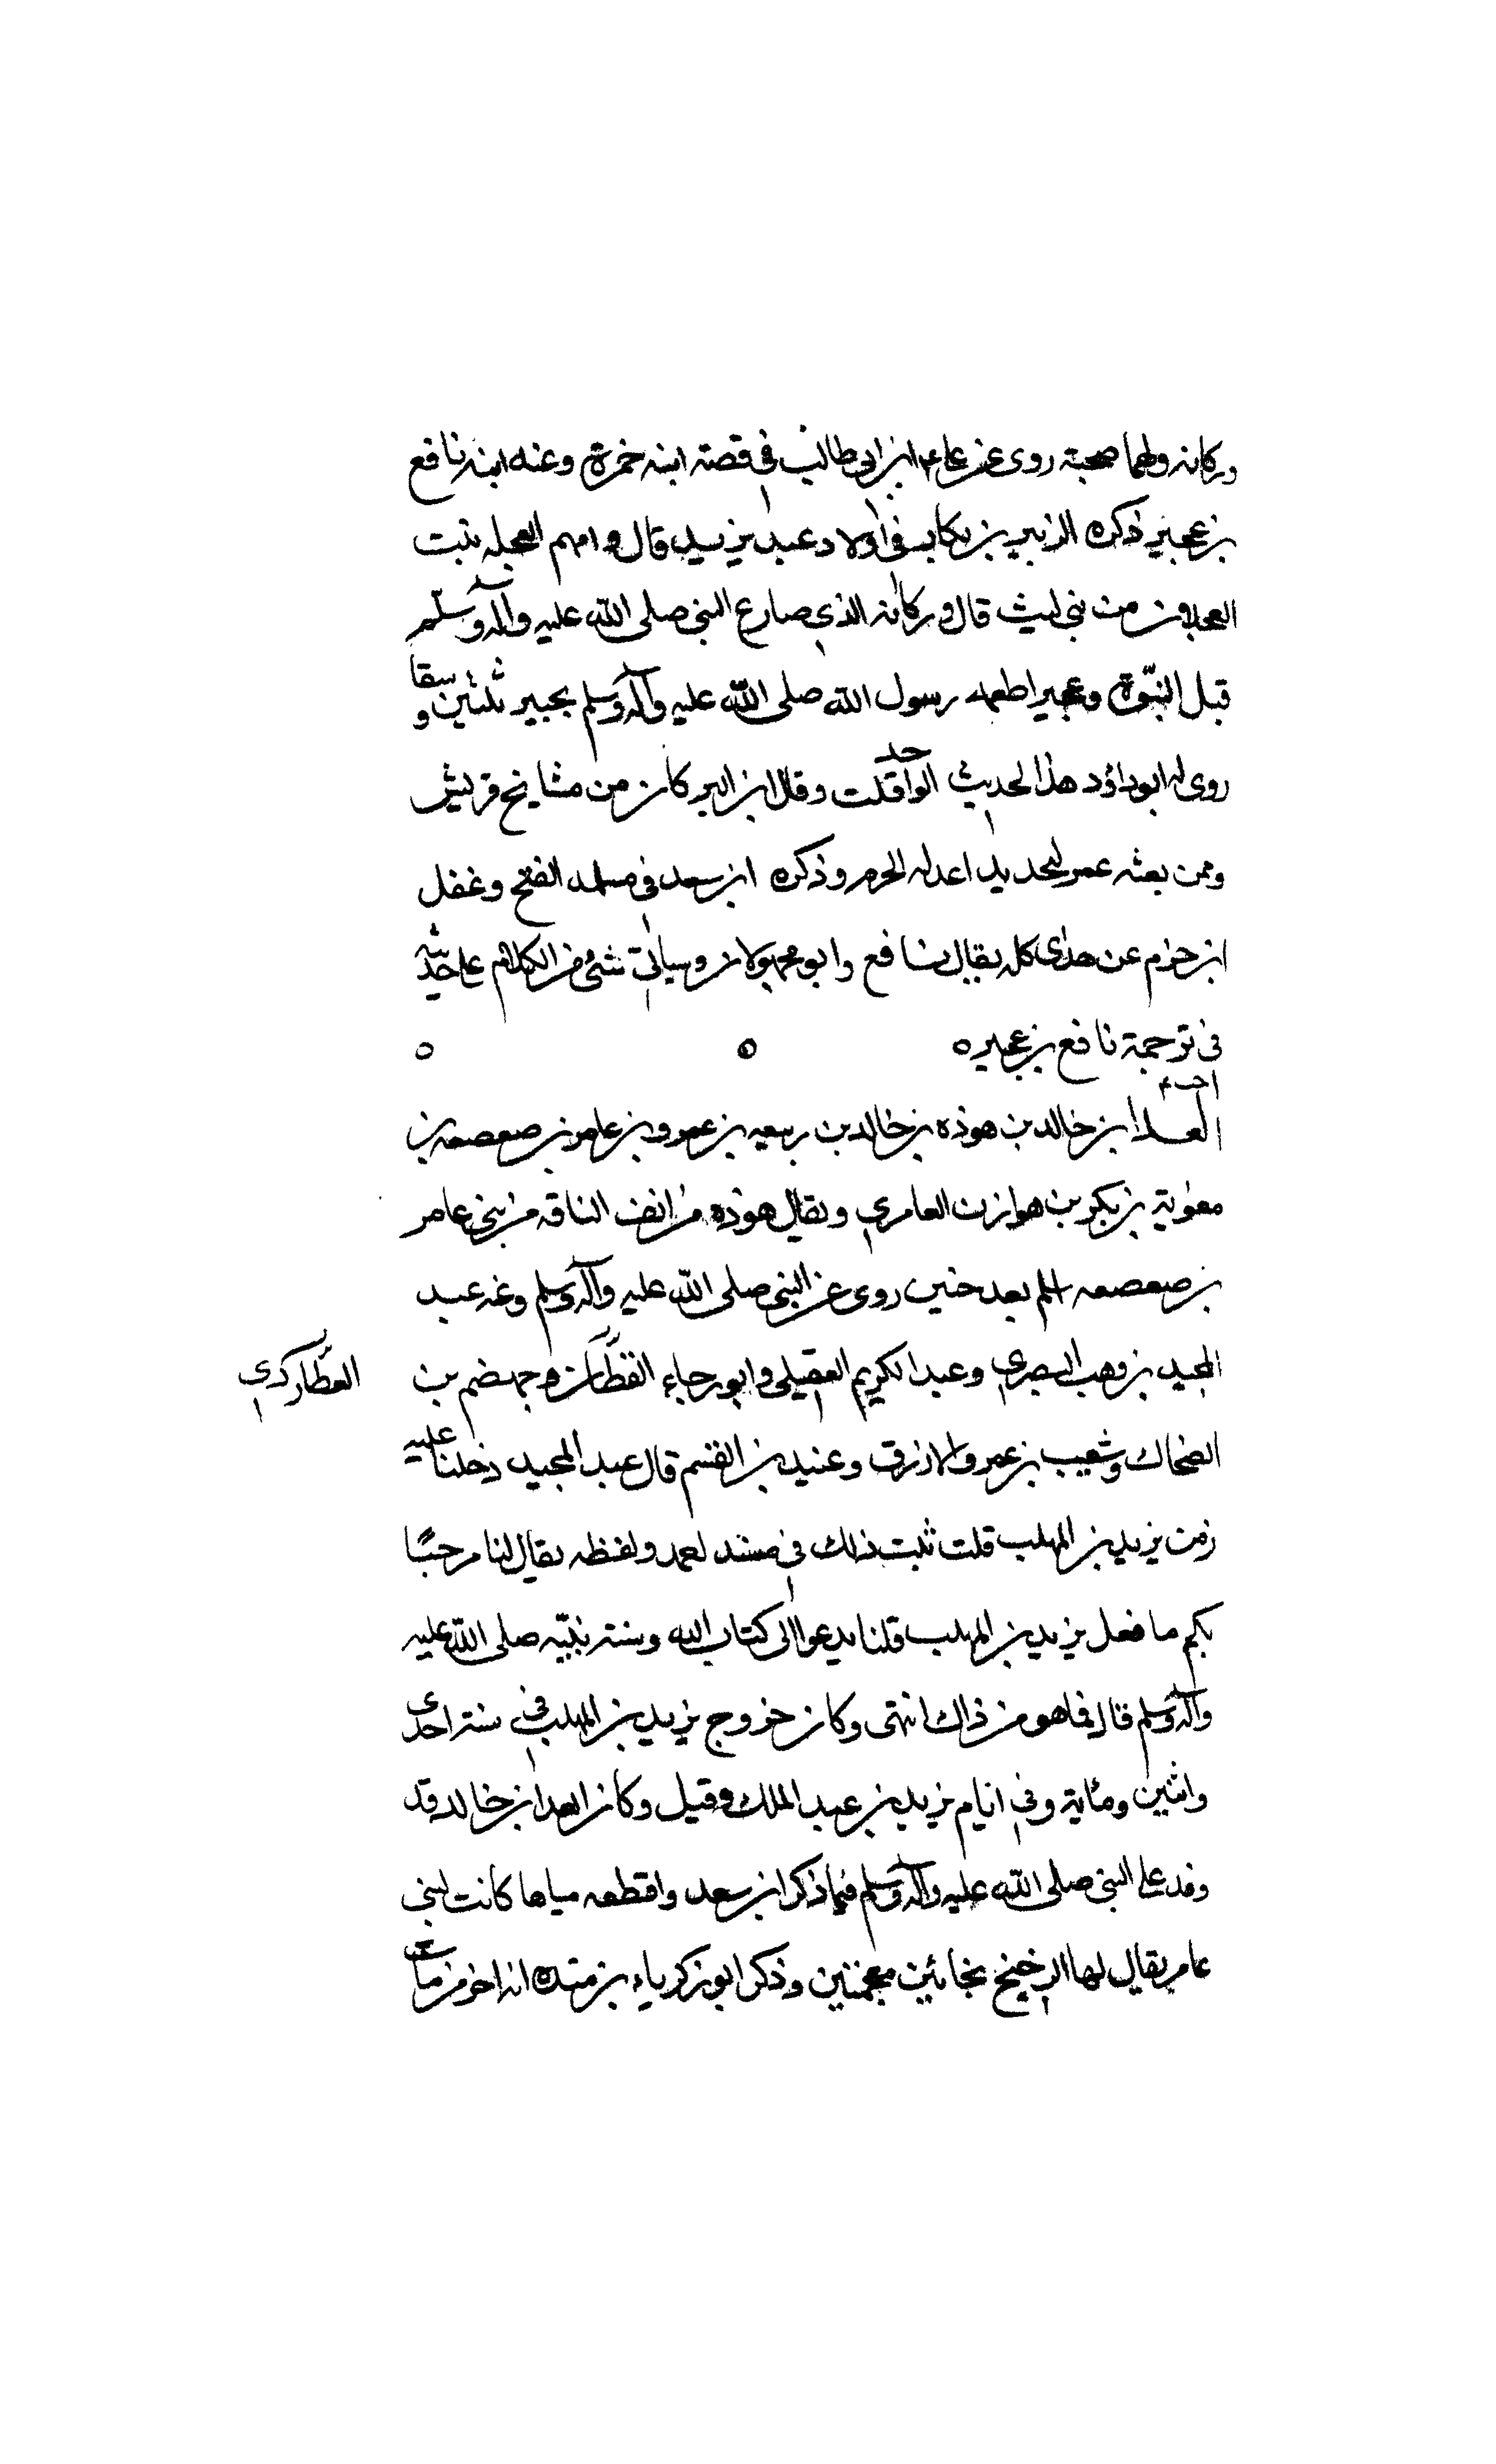 وركانه ولهما صحبة روى عن على ابن ابى طالب فى قصة ابنه حمزة وعنه ابنه نافع
بن عجير ذكره الزبير بن بكار فى اولاد عبد يزيد قال وامهم العجله بنت
العجلان من بنى ليث قال وركانه الذى صارع النبى صلى الله عليه وآله وسلم
قبل النبوة وعجير اطعمه رسول الله صلى الله عليه وآله وسلم بخيبر ثلثين وسقا
روى له ابوداؤد هذا الحديث الواحد قلت وقال ابن كان من مشايخ قريش
وممن بعثه عمر لتحديد الحرم وذكره ابن سعد فى مسلمه الفتح وغفل
ابن حزم عن هذا كله يقال نافع وابوه مجهولان وسياتى شئ من الكلام على حديثه
فى ترجمة نافع بن عجير ه
العدا بن خالد بن هوذه بن خالد بن ربيعه بن عمرو بن عامر بن صعصعه بن
معوية بن بكر بن هوازن العامرى ويقال هوذه من انف الناقه من بنى عامر
بن صعصعه اسلم بعد حنين روى عن النبى صلى الله عليه وآله وسلم وعنه عبد
المجيد بن وهب البصرى وعبد الكريم العقيلى وابو رجاء القطان وجهضم بن
العطاردى
الضحاك وشعيب بن عمر والازرق و بن القسم قال عبد المجيد دخلنا عليه
زمن يزيد بن المهلب قلت ثبت ذلك فى مسند احمد ولفظه يقال لنا مرحبًا
بكم ما فعل يزيد بن المهلب قلنا يدعوا الى كتاب الله وسنة نبيّه صلى الله عليه
وآله وسلم قال فما هو من ذاك انتهى وكان خروج يزيد بن المهلب فى سنة احدى
واثنين ومائة وفى ايام يزيد بن عبد الملك وقيل وكان العدا بن خالد قد
وفد على النبى صلى الله عليه وآله وسلم فيما ذكر ابن سعد واقطعه مياها كانت لبنى
عامر يقال لها الرخيخ بخائين معجمتين وذكر ابو زكرياء بن منده انه اخر من مات